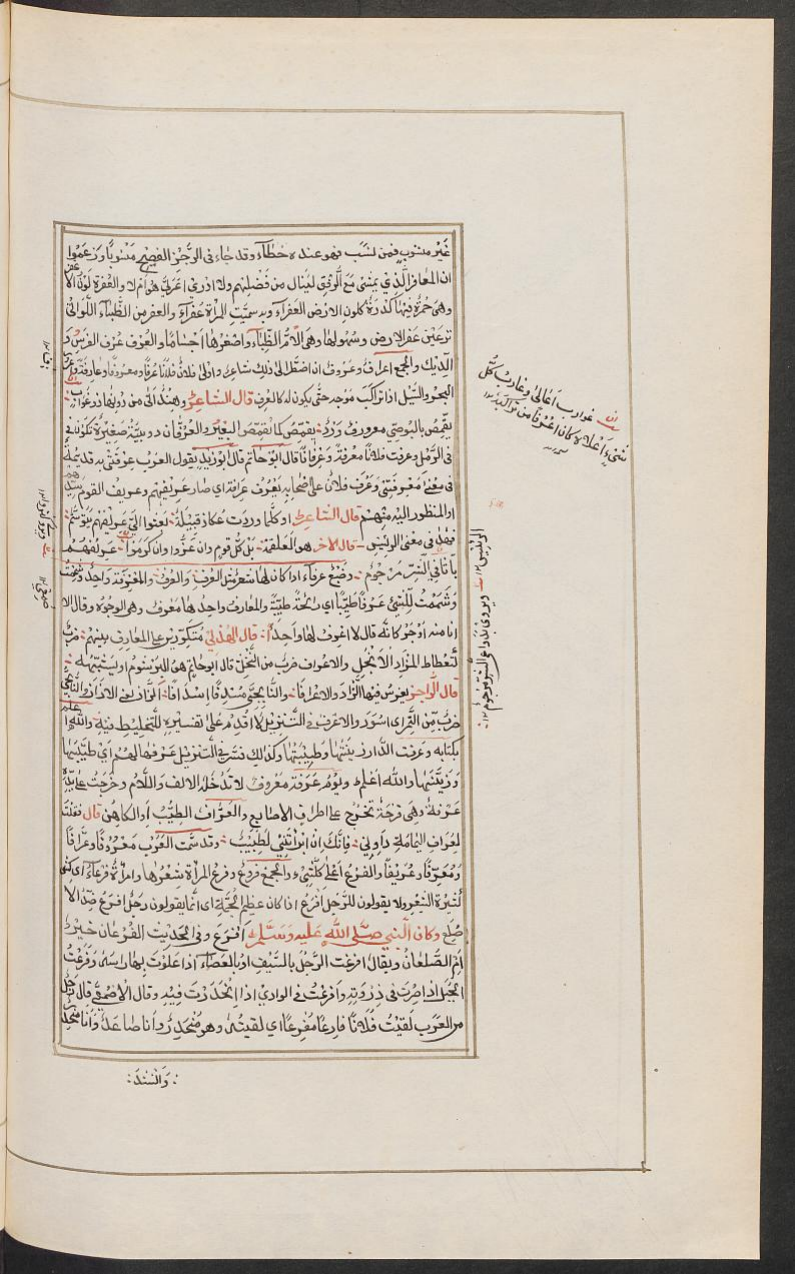 غير منسوب فمن نسب فهو عنده خطاء وقد جاء في الرجز الفصيح منسوبا وزعموا
ان المعافر الذي يمشي مع الرفق لينال من فضلهم ولا ادري اعربي هو ام لا والعفرة لون الا
وهي حمرة فيها كدرة كلون الارض العفراء وبه سميت المرأة عفراء والعفر من الظباء اللواتي
ترعين عفر الارض وسهولها وهي الأم الظباء واصغرها اجساما والعرف عرف الفرس و
الديك والجمع اعراف وعروف ان اضطر الى ذلك شاعر واولى فلان فلانا عرفا ومعروفا وعارفة وعرف
البحر والسيل اذا تراكب موجه حتى يكون له كالعرف قال الشاعر وهند اتى من دونها ذو غوارب
يقمص بالبوصي معرورف ورد يقمص كما يقمص البعير والعرفان دويبة صغيرة تكون في
في الرمل وعرفت فلانا معرفة وعرفانا قال ابو حاتم قال ابو زيد يقول العرب عرفتي به قديمة
في معنى معرفتي وعرف فلان على اصحابه يعرف عرافة اي صار عريفهم وعريف القوم سيدهم
او المنظور اليه منهم قال الشاعر او كلما وردت عكاظ قبيلة بعثوا الي عريفهم يتوسم
فهذا في معنى الرئيس قال الاخر هو العلقمة بل كل قوم وان عزوا وان كرموا عريفهم
باثافي الشر مرجوم وضبع عرفاء اذا كان لها شعر مثل العرف والعرف والمعرفة واحد وشممت
وشممت للشيء عرفا طيبا اي رائحة طيبة والمعارف واحدها معرف وهي الوجوه وقال الا
انا منه اوجر كانه قال لا اعرف لها واحدا قال الهذلي متكورين على المعارف بينهم ضرب
كتعطاط المزاد الانجل والاعراف ضرب من النخل قال ابو حاتم هي للبرشوم او يشبهه
قال الراجز يغرس فيها الزاد والاعرافا والنابجي مسدفا اسدافا الزاذ يعني الازاذ والنابجي
ضرب من التمر اي اسود والاعراف في التنزيل لا اقدم على تفسيره للتخليط فيه والله اعلم
بكتابه وعرفت الدار زينتها وطيبتها وكذلك فسر في التنزيل عرفها لهم اي طيبها
وزينتها والله اعلم ويوم عرفة معروف لا تدخله الالف واللام وخرجت على يده
عرفة وهي قرحة تخرج على اطراف الاصابع والعراف الطبيب او الكاهن قال فقلت
لعراف اليمامة داوني فانك ان ابراتني لطبيب وقد سمت العرب معروفا وعرافا
ومعرفا وعريفا والفرع اعلى كل شيء والجمع فروع وفرع المرأة شعرها وامرأة فرعاء اي كثي
كثيرة الشعر ولا يقولون للرجل افرع اذا كان عظيم الجمة اي انما يقولون رجل افرع ضد الا
صلع وكان النبي صلى الله عليه وسلم افرع وفي الحديث الفرعان خير
ام الصلعان ويقال افرعت الرجل بالسيف او بالعصا اذا علوت بها راسه وفرعت
الجبل اذا صرت في ذروته وافرعت في الوادي اذا انحدرت فيه وقال الاصمعي قال رجل
من العرب لقيت فلانا فارعا مفرعا اي لقيته وهو منحدر وانا صاعد وانا منحد
والسند
غوارب اعالي وغارب كل
شيء اعلاه كان اعرفا من
الرئيس
ويروى بدواهي الشر مرجوم